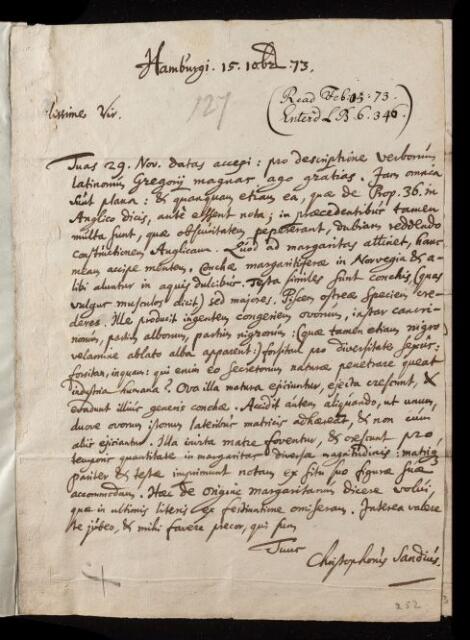 Hamburgi. 15. 10br. 73.
127
Read Feb: 05: 73.
Enterd L B. 6. 346
lissime Vir.
Tuas 29. Nov. datas accepi: pro descriptione verborum
latinorum Gregorij magnas ago gratias. Jam omnia
sunt plana: & quanquam etiam ea, quae de Prop. 36. in
Anglico dicis, ante essent nota; in praecedentibus tamen
multa sunt, quae obscuritatem pepererant, dubiam reddendo
constructionem Anglicam. Quod ad margaritas attinet, hanc
meam accipe mentem. Conchae margaritiferae in Norvegia & a-
libi aluntur in aquis dulcibus. Testa similes sunt conchis, (quas
vulgus musculos dicit) sed majores. Piscem ostreae speciem cre-
deres. Ille producit ingentem congeriem ovorum, instar cancri-
norum, partim alborum, partim nigrorum: (quae tamen etiam nigro
velamine ablato alba apparent:) forsitan pro diversitate sexus:
forsitan, inquam: qui enim eo secretorum naturae penetrare queat
industria humana? Ova illa matura ejiciuntur, ejecta crescunt, &
evadunt illius generis conchae. Accidit autem aliquando, ut unum,
duove ovorum istorum lateribus matricis adhaereat, & non cum
alijs ejiciantur. Illa invita matre foventur, & crescunt pro
temporis quantitate in margaritas diversae magnitudinis: matrici
pariter & testae imprimunt notam ex situ suo figurae suae
accommodam. Haec de origine margaritarum dicere volui,
quae in ultimis literis ex festinatione omiseram. Interea valere
te jubeo, & mihi favere precor, qui sum
Tuus
Christophorus Sandius.
252